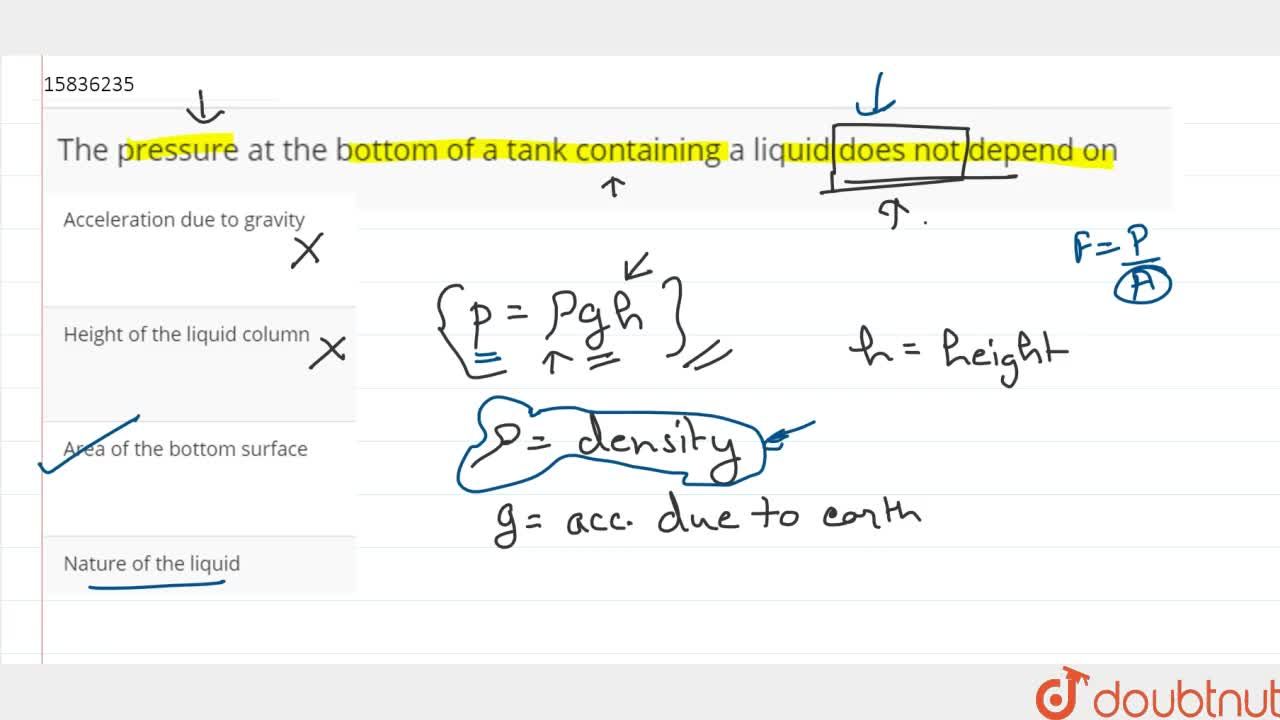 15836235
The pressure at the bottom of a tank containing a liquid does not depend on
Acceleration due to gravity
X
F = P/A
{p = ρgh}
Height of the liquid column X
h = height
Area of the bottom surface
ρ = density
g = acc. due to earth
Nature of the liquid
doubtnut